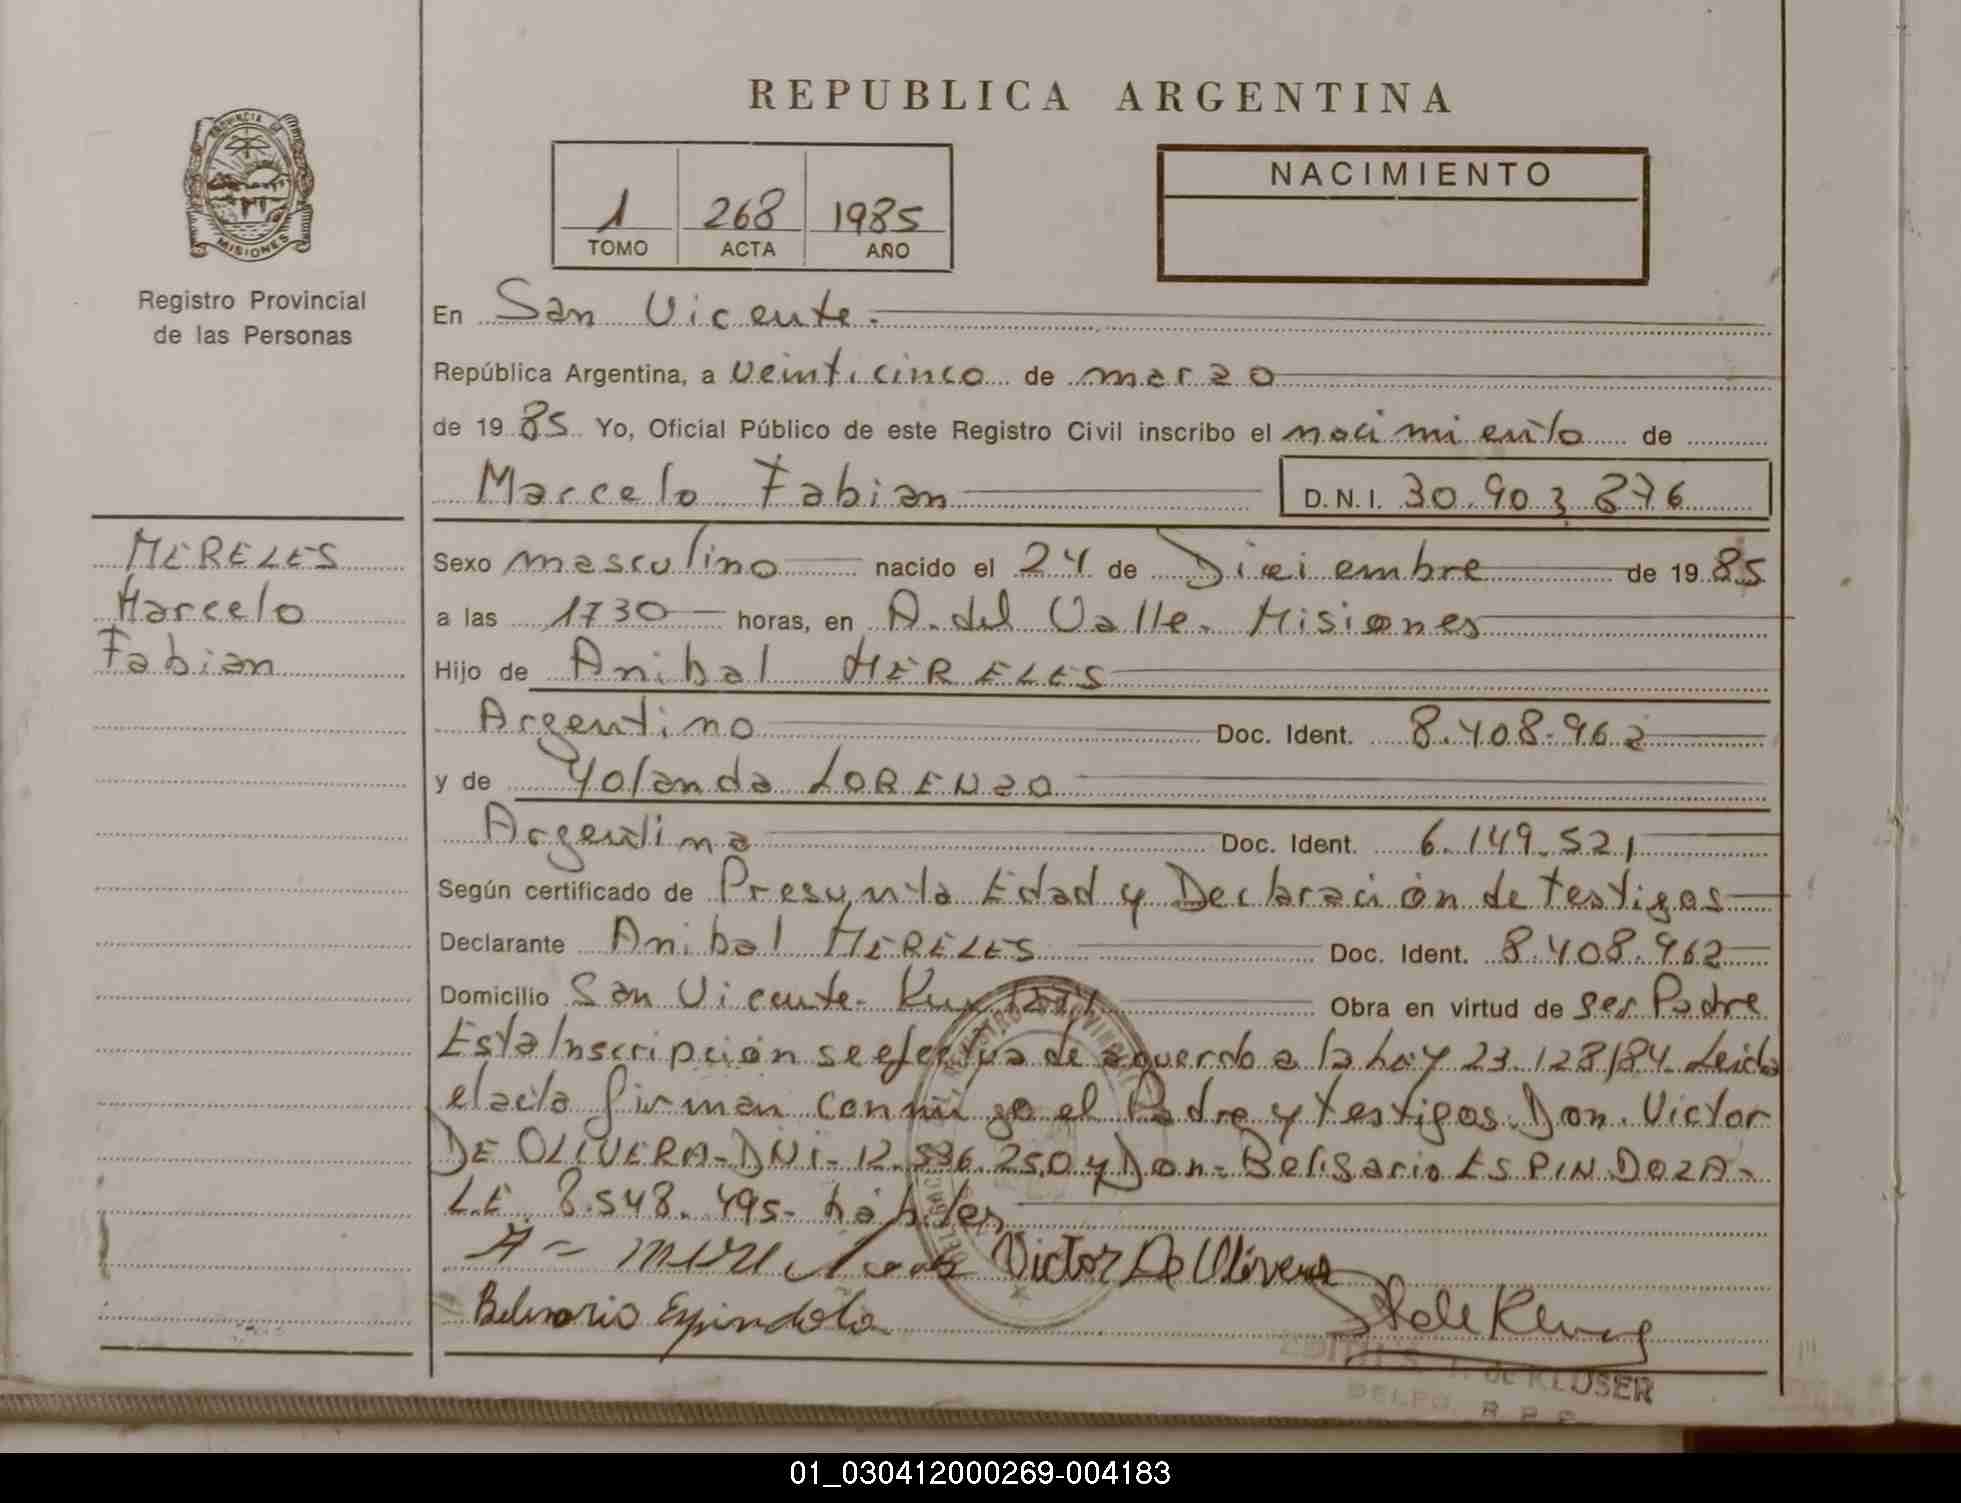 REPUBLICA ARGENTINA
PROVINCIA DE
MISIONES
Registro Provincial
de las Personas
1 268 1985
TOMO ACTA AÑO
NACIMIENTO
En San Vicente.
República Argentina, a veinticinco de marzo
de 1985 Yo, Oficial Público de este Registro Civil inscribo el nacimiento de
Marcelo Fabian D.N.I. 30.903.876
MERELES
Marcelo
Fabian
Sexo masculino nacido el 24 de Diciembre de 1985
a las 1730 horas, en A. del Valle. Misiones
Hijo de Anibal MERELES
Argentino Doc. Ident. 8.408.962
y de Yolanda LORENZO
Argentina Doc. Ident. 6.149.521
Según certificado de Presunta Edad y Declaración de testigos
Declarante Anibal MERELES Doc. Ident. 8.408.962
Domicilio San Vicente. Obra en virtud de ser Padre
Esta Inscripción se efectua de aquerdo a la Ley 23.128/84. Leida
el acta firman conmigo el Padre y testigos Don. Victor
DE OLIVERA-DNI-12.536.250 y Don-Belisario ESPINDOZA-
L.E. 8.548.495- hábiles
Victor De Olivera
Belisario Espindola
de KLUSER
DELEG. R.P.P.
01_030412000269-004183